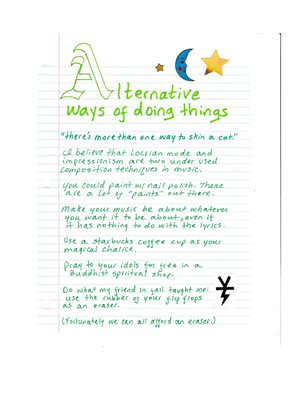 Alternative
ways of doing things
"there's more than one way to skin a cat."
I believe that Locrian mode and
impressionism are two under used
composition techniques in music.
You could paint w/ nail polish. There
are a lot of "paints" out there.
Make your music be about whatever
you want it to be about, even if
it has nothing to do with the lyrics.
Use a starbucks coffee cup as your
magical chalice.
Pray to your idols for free in a
Buddhist spiritual shop.
Do what my friend in jail taught me:
use the rubber of your flip flops
as an eraser.
(Fortunately we can all afford an eraser.)